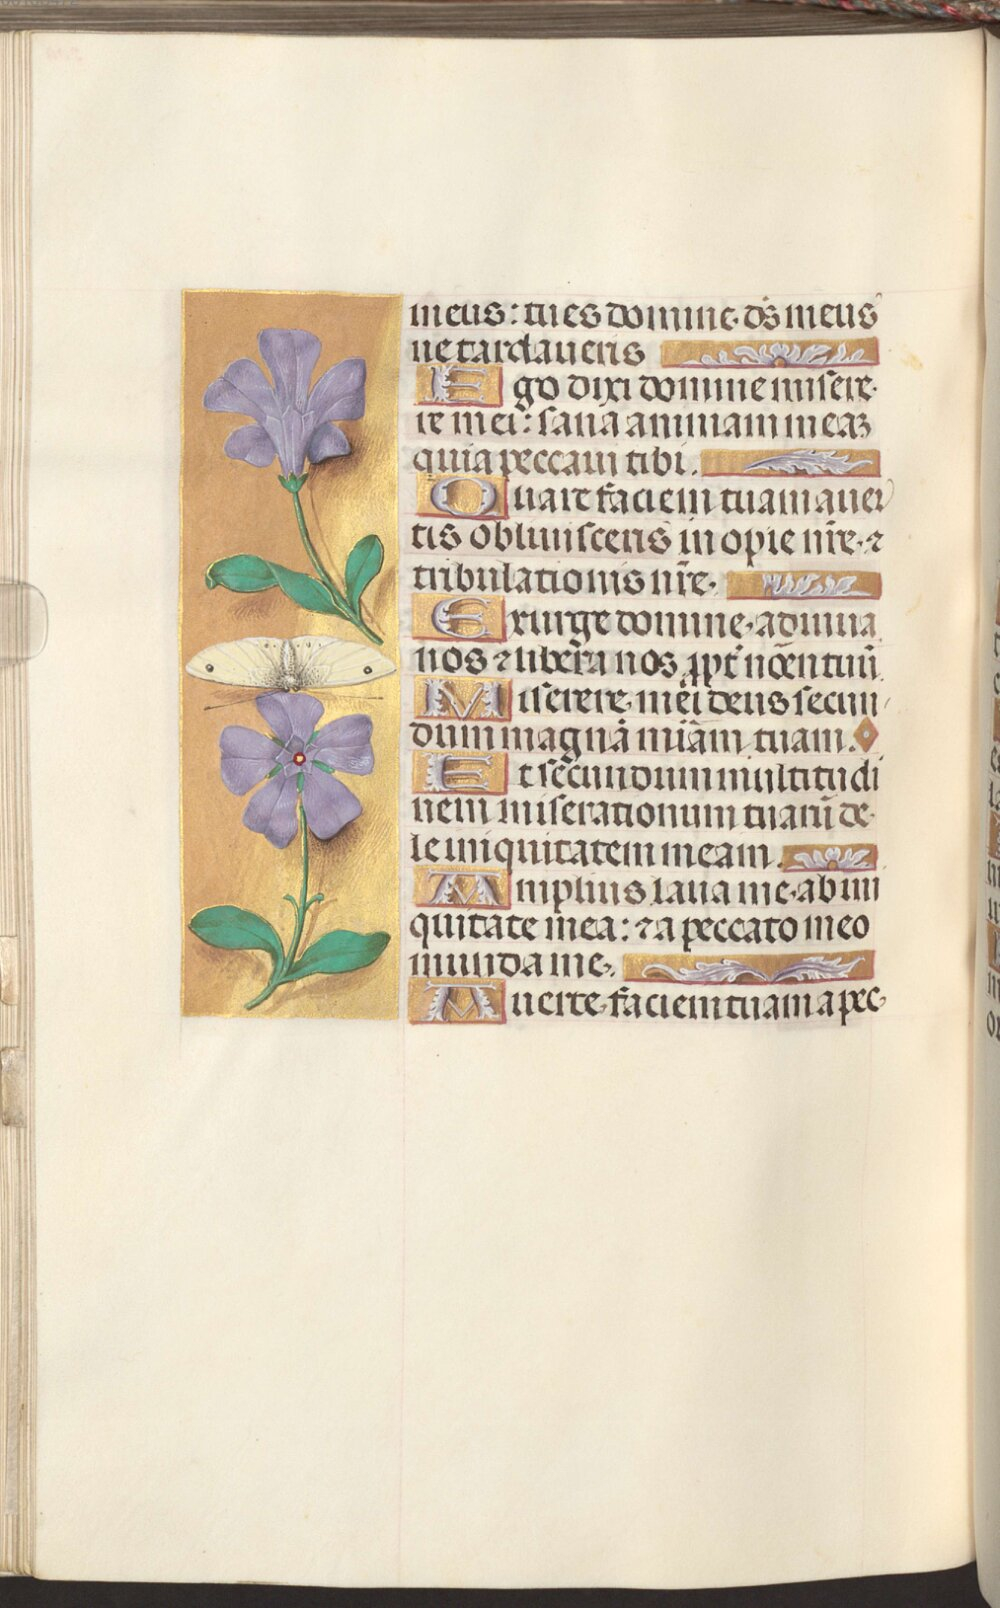 meus: tu es domine ds̄ meus
ne tardaveris
Ego dixi domine misere
re mei: sana animam meaꝫ
quia peccavi tibi.
Quare faciem tuam aver
tis oblivisceris inopie nr̄e ⁊
tribulationis nr̄e.
Exurge domine adiuva
nos ⁊ libera nos ꝓpt̄ nōen tuū
Miserere mei deus secun
dum magnā miām tuam.
Et secundum multitudi
nem miserationum tuarū de
le iniquitatem meam.
Amplius lava me ab ini
quitate mea: ⁊ a peccato meo
munda me.
Averte faciem tuam a pec